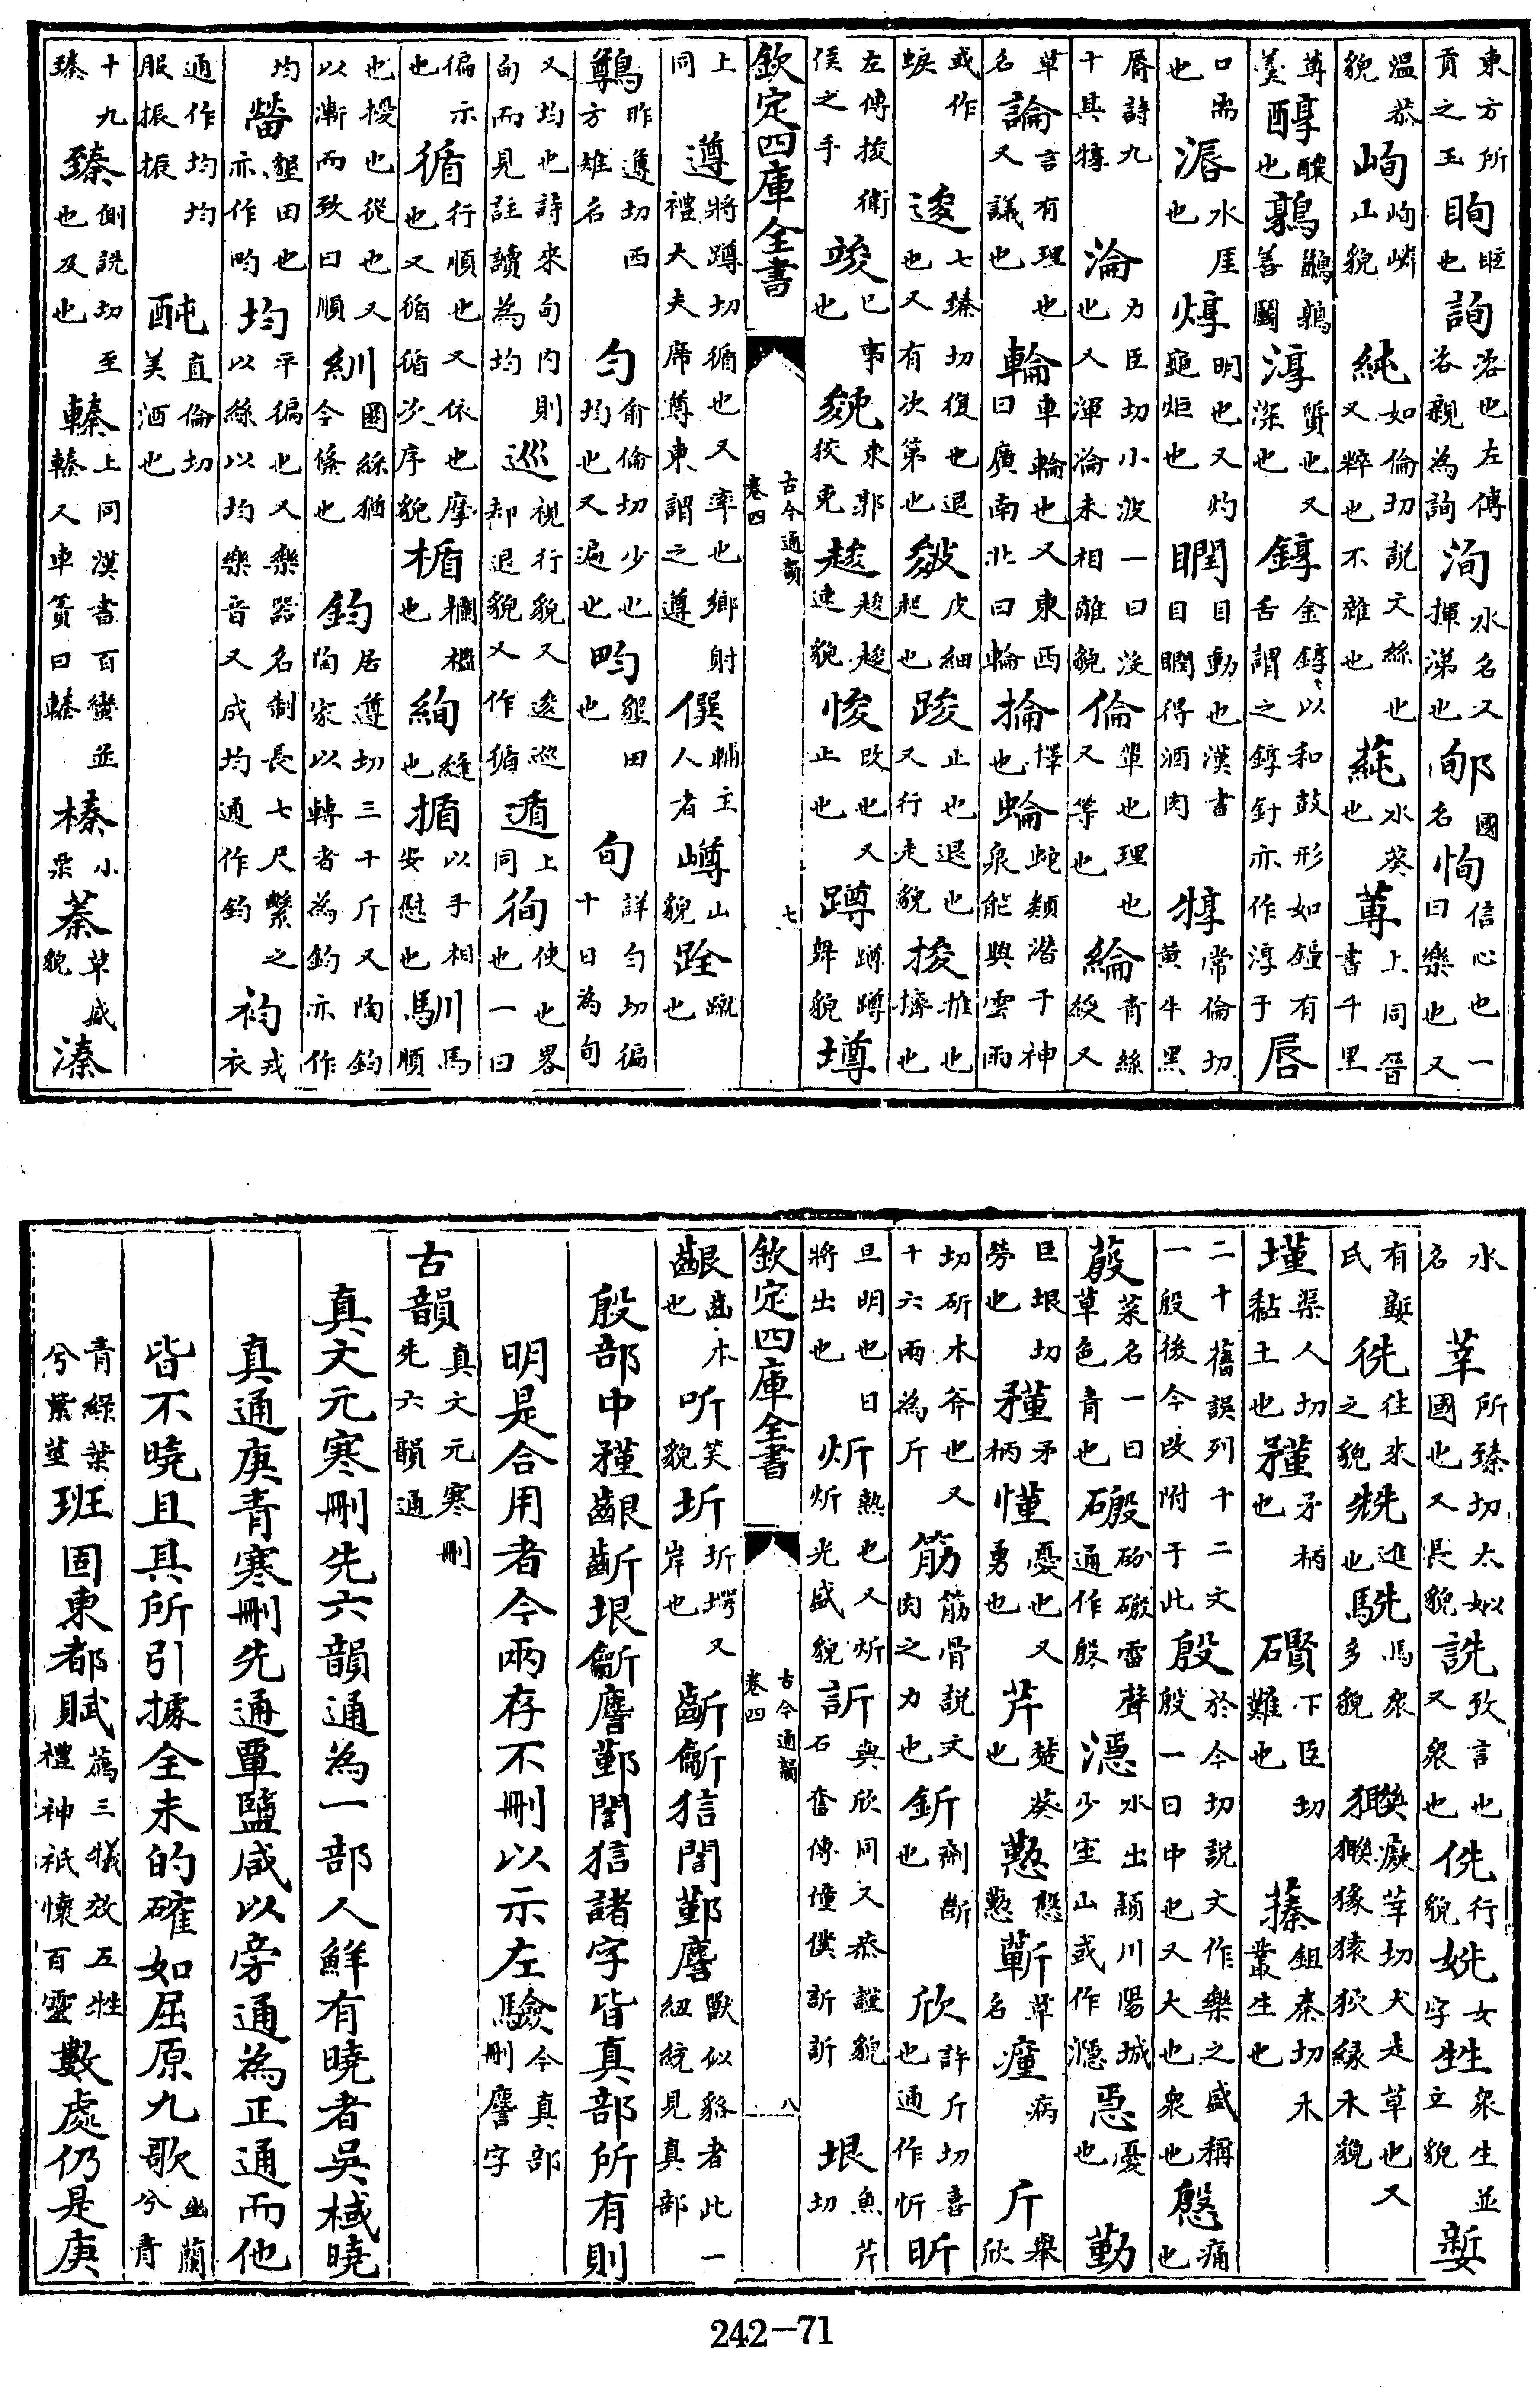 東方所貢之玉眴眩也詢咨也左傳咨親為詢洵水名又揮涕也郇國名恂信心也一曰樂也又
溫恭貌峋峋嶙山貌純如倫切説文絲也又粹也不雜也蒓水葵也蓴上同晉書千里
蓴羮醇醲也鶉鷁鶉善鬭淳質也又深也錞金錞以和鼓形如鐘有舌謂之錞釪亦作淳于唇
口耑也漘水厓也焞明也又灼龜炬也瞤目動也漢書目瞤得酒肉犉常倫切黄牛黑
脣詩九十其犉淪力臣切小波一曰沒也又渾淪未相離貌倫輩也理也又等也綸青絲綬又
草名論言有理也又議也輪車輪也又東西曰廣南北曰輪掄擇也蜦蛇類潜于神泉能興雲雨
或作蜧逡七臻切復也退也又有次第也皴皮細起也踆止也退也又行走貌捘推也擠也
左傳捘衛侯之手竣已事也㕙東郭狡兎趍趍趍速貌悛改也又止也蹲蹲蹲舞貌墫
欽定四庫全書 古今通韻 卷四 七
上同遵將蹲切循也又率也鄉射禮大夫席尊東謂之遵僎輔主人者嶟山貌跧蹴也
鷷昨遵切西方雉名勻俞倫切少也均也又遍也畇墾田也旬詳勻切徧也十日為旬
又均也詩來旬内則旬而見註讀為均巡視行貌又逡巡却退貌又作循遁上同徇使也一曰畧
徧示也循行順也又依也摩也又循循次序貌楯欄檻也絢縫也揗以手相安慰也馴馬順
也擾也從也又以漸而致曰順紃圜絲猶今絛也鈞居遵切三十斤又陶鈞陶家以轉者為鈞亦作
均䔈墾田也亦作畇均平徧也又樂器名制長七尺繫之以絲以均樂音又成均通作鈞袀戎衣
通作均均服振振酏直倫切美酒也
十九臻臻側詵切至也及也轃上同漢書百蠻並轃轃又車簀曰轃榛小栗蓁草盛貌溱
水名莘所臻切太姒國也又長貌詵致言也又衆也侁行貌姺女字甡衆生並立貌㜪
有㜪氏侁往來之貌兟進也駪馬衆多貌獉癡莘切犬走草也又獉獉猿狖緣木貌
墐渠人切黏土也矜矛柄也礥下臣切難也榛鉏秦切木叢生也
二十殷舊誤列十二文一殷後今改附于此殷於今切説文作樂之盛稱殷一曰中也又大也衆也慇痛也
蒑菜名一曰草色青也磤砏磤雷聲通作殷濦水出潁川陽城少室山或作㶏㥯憂也勤
巨垠切勞也矜矛柄懂憂也又勇也芹楚葵也懃慇懃蘄草名瘽病斤舉欣
切斫木斧也又十六兩為斤筋筋骨説文肉之力也釿劑斷也欣許斤切喜也通作忻昕
旦明也日將出也炘熱也又炘炘光盛貌訢與欣同又恭謹貌石奮傳僮僕訢訢垠魚芹切
欽定四庫全書 古今通韻 卷四 八
齦齒本也听笑貌圻圻堮又岸也齗齗狺誾鄞𪊧獸似貉者此一紐統見真部
殷部中矜齦齗垠齗𪊧鄞誾狺諸字皆真部所有則
明是合用者今兩存不刪以示左驗今真部刪𪊧字
古韻真文元寒刪先六韻通
真文元寒刪先六韻通為一部人鮮有曉者吳棫曉
真通庚青寒刪先通覃鹽咸以旁通為正通而他
皆不曉且其所引據全未的確如屈原九歌幽蘭兮青
青綠葉兮紫莖班固東都賦薦三犧效五牲禮神祇懷百靈數處仍是庚
242-71